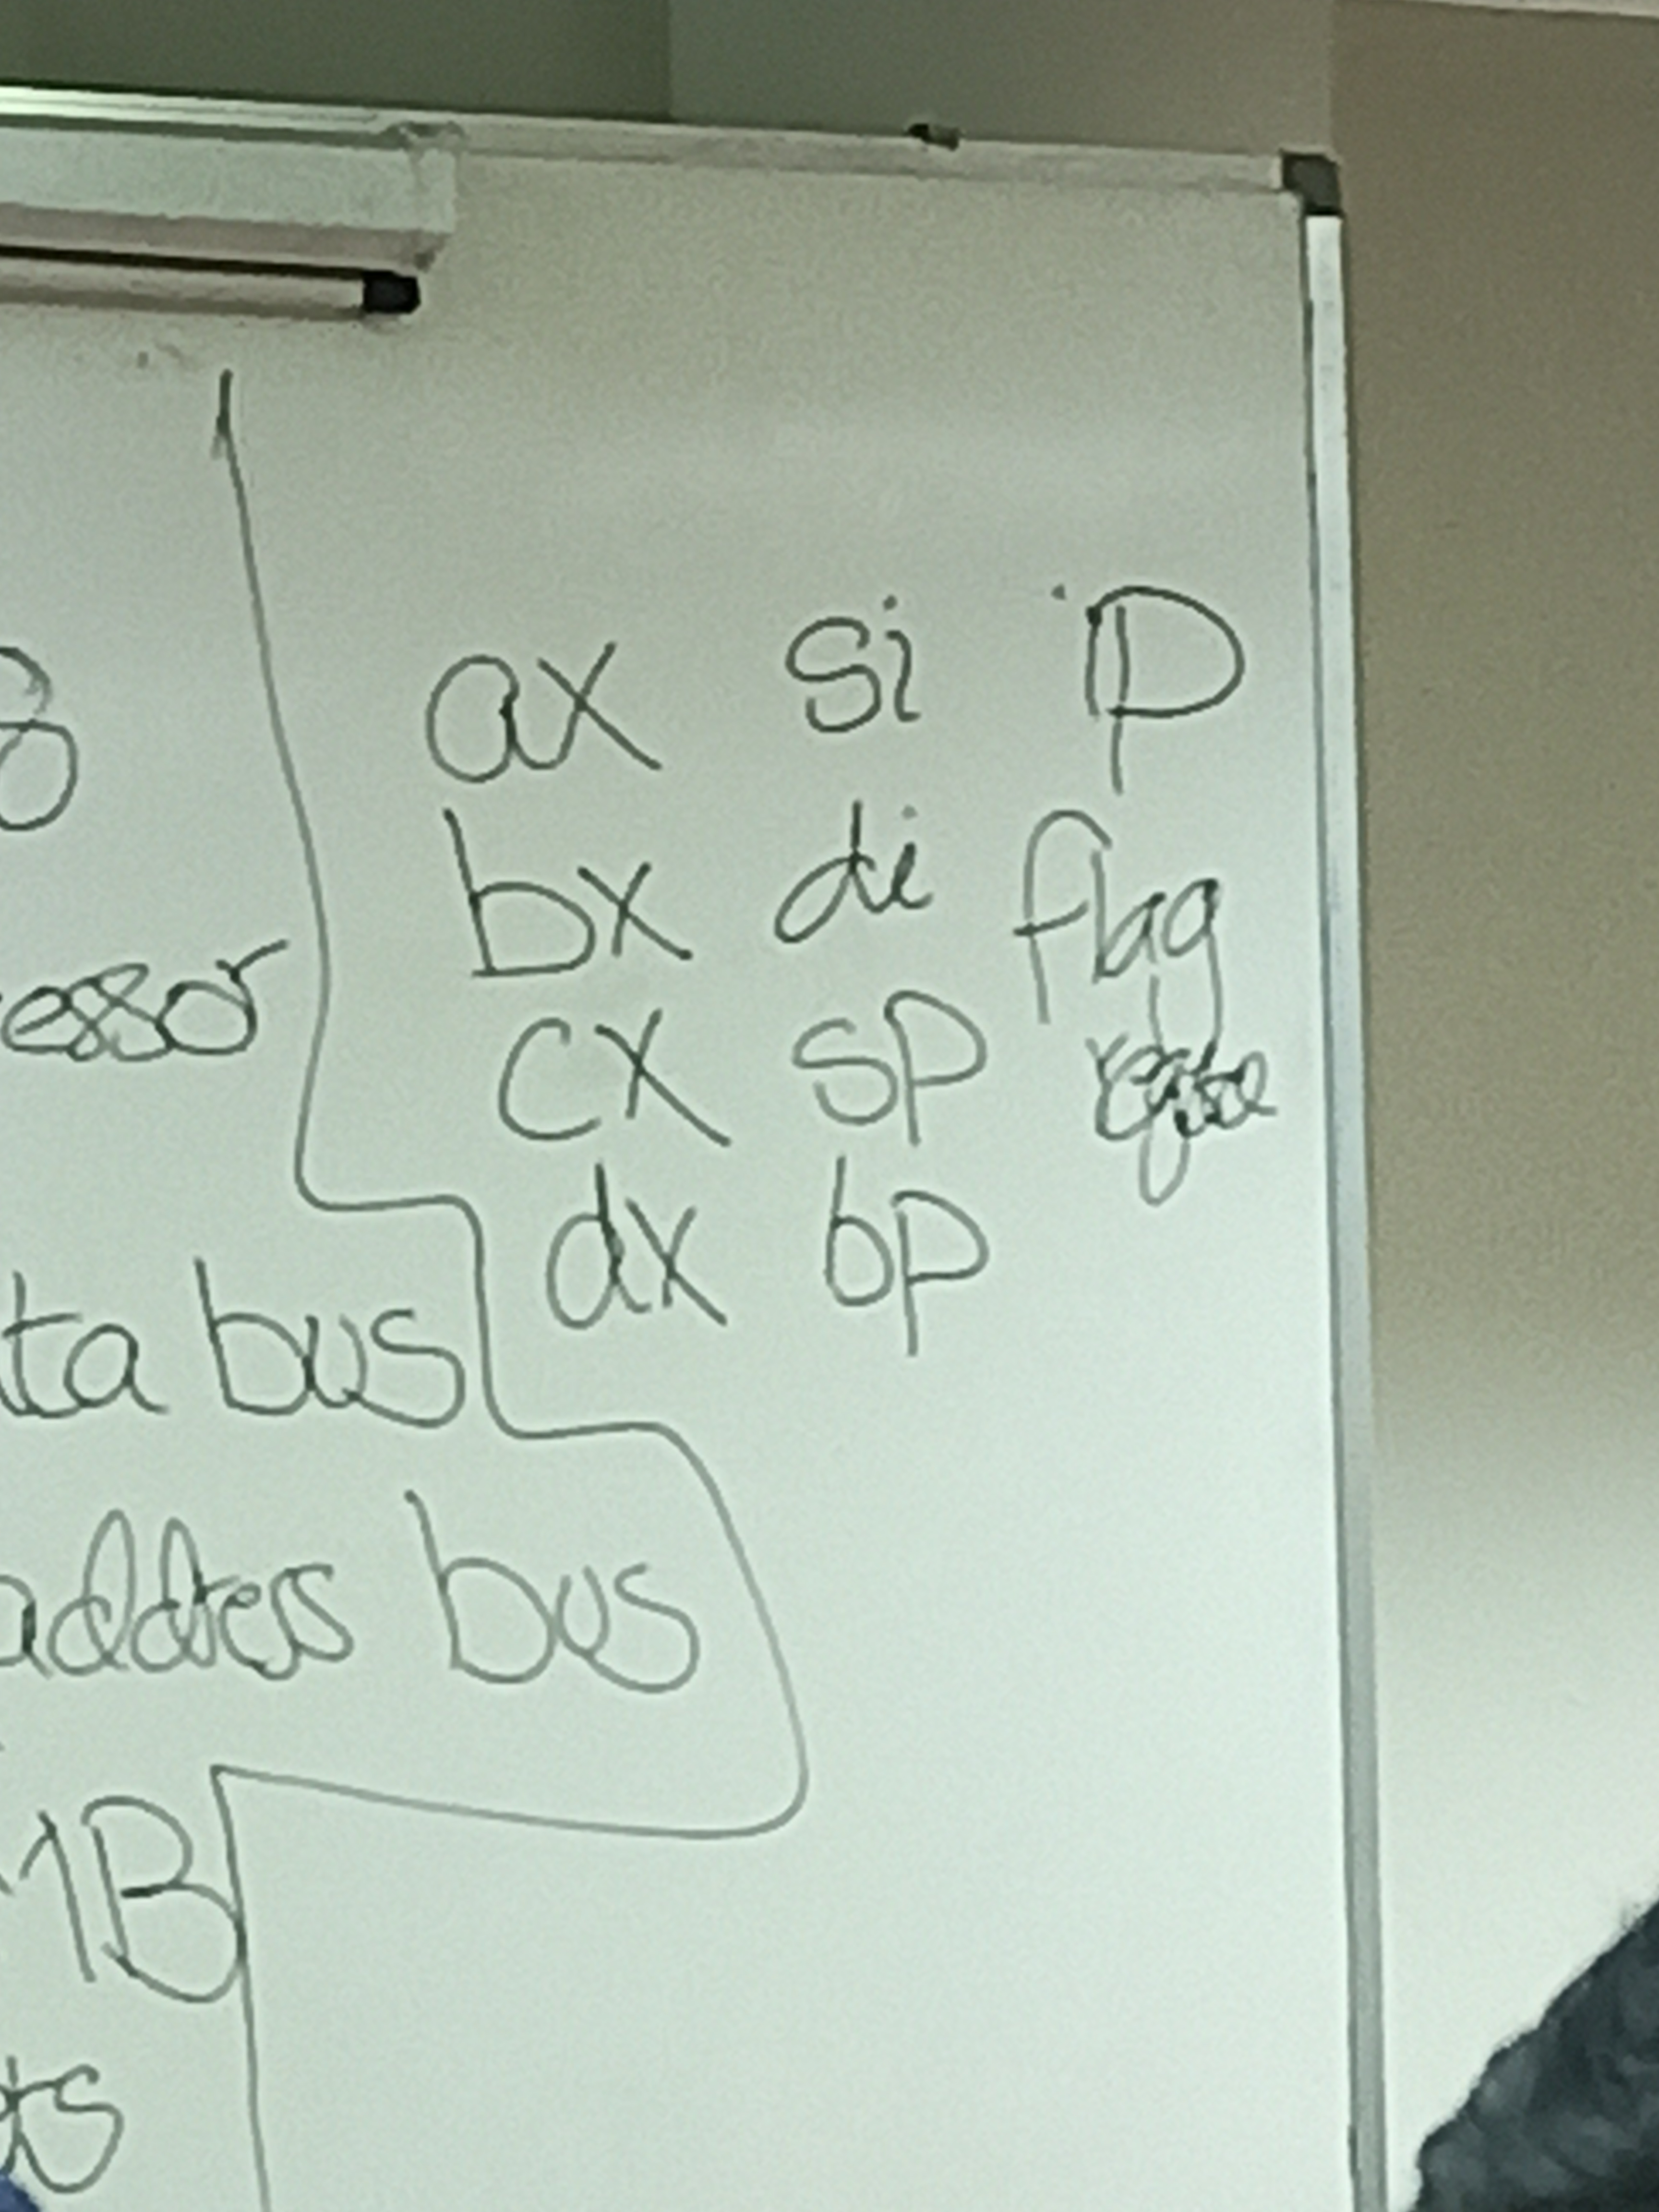 8
essor
ta bus
address bus
1B
ts
ax si iP
bx di flag
cx sp
dx bp